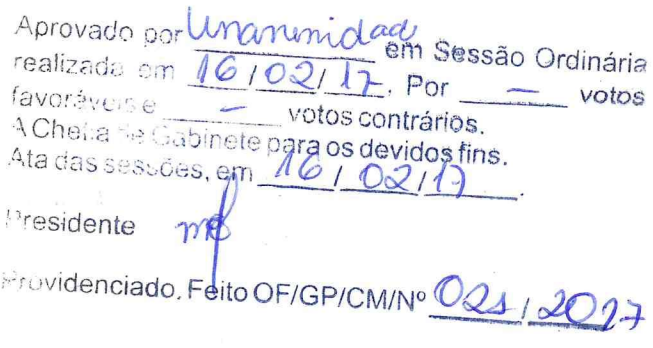 Aprovado por Unanimidad em Sessão Ordinária
realizada em 16/02/17. Por — votos
favoráveis e — votos contrários.
A Chefia de Gabinete para os devidos fins.
Ata das sessões, em 16/02/17.
Presidente
Providenciado. Feito OF/GP/CM/Nº 021/2017